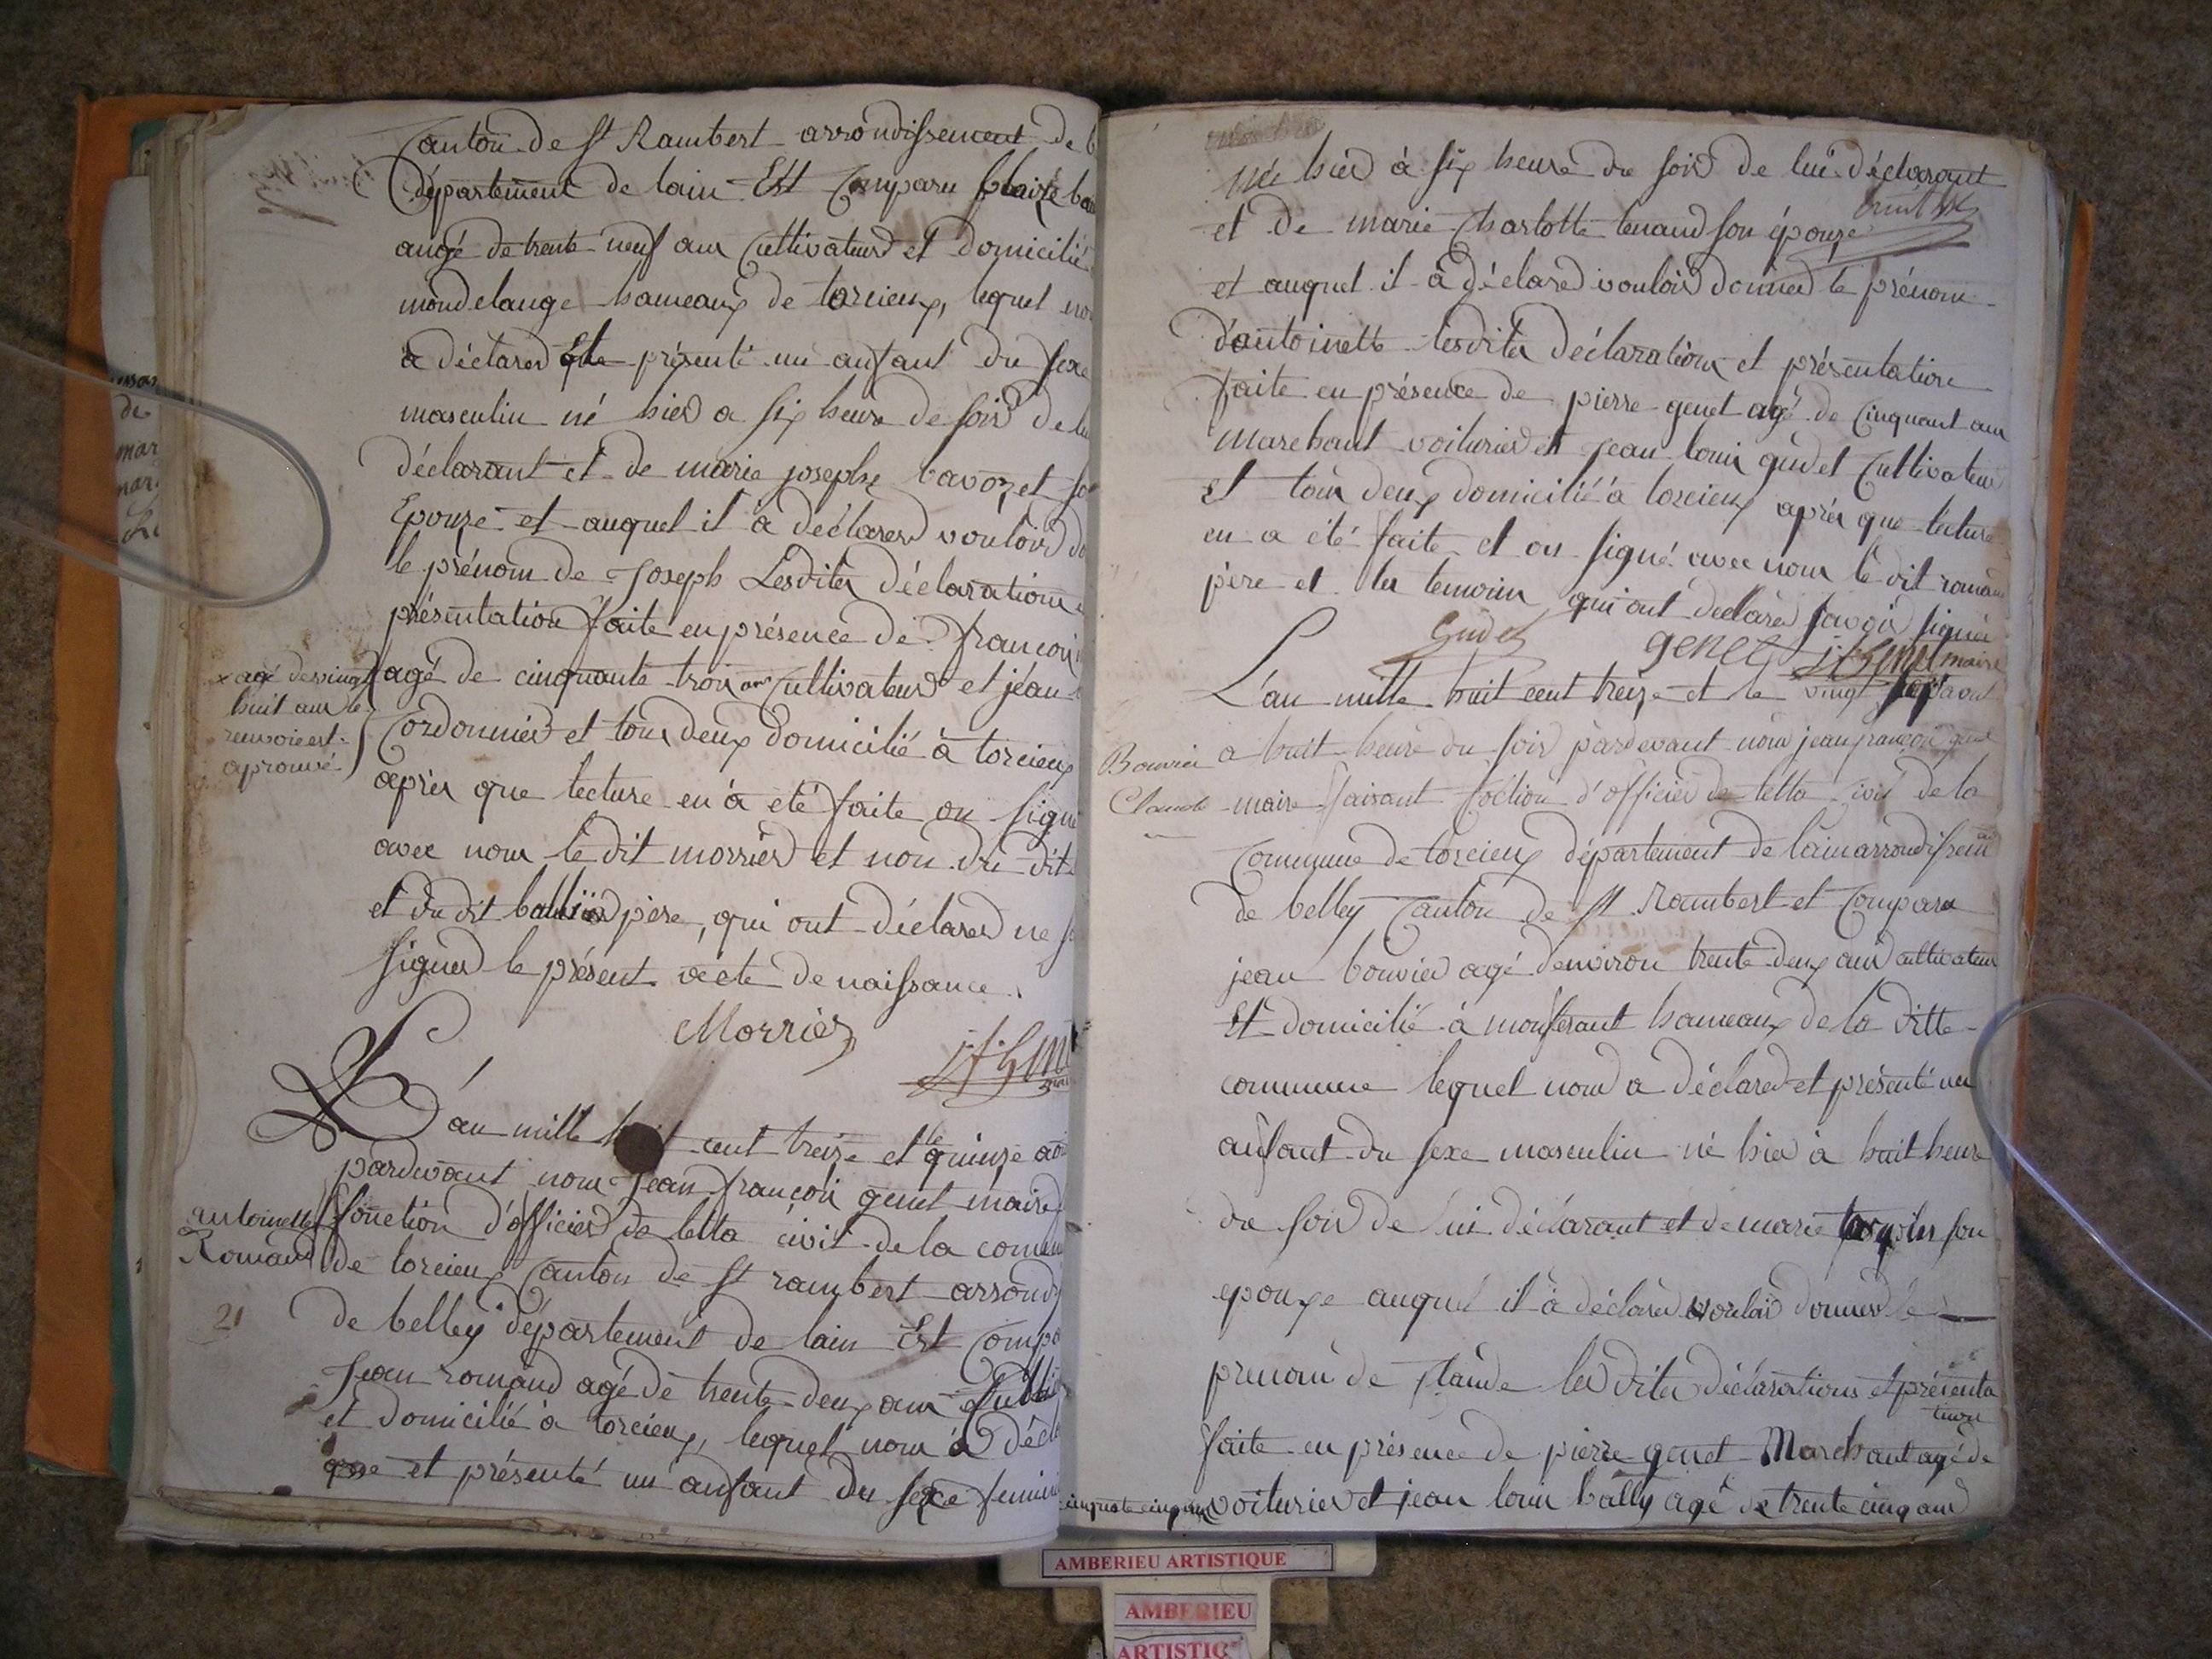 Canton de St Rambert arrondissement de
département de lain Est Comparu blaise
augé de trente neuf ans Cultivateur et domicilié
mondelange hameaux de torcieux, lequel
a déclarer présenté un anfant du sexe
masculin né hier a six heure de soir de
déclarant et de marie josephe
Epouze et auquel il a déclarer vouloir
le prénom de Joseph Lesdites déclarations
présentation faite en présence de françois
agé de cinquante trois ans Cultivateur et jean
× agé de vingt
huit ans le
renvoie est
aprouvé
Cordonnier et tous deux domicilié à torcieux
après que lecture en a été faite on signé
avec nous le dit morrier et non du dit
et du dit père, qui ont déclarer ne
signer le présent acte de naissance.
Morrier
L'an mille huit cent treize et le quinze
pardevant nous Jean françois genet maire
antoinette
Romand
fonction d'officier de letta civil de la
de torcieux Canton de St rambert
21
de belley département de lain Est
Jean romand agé de trente deux ans
et domicilié à torcieux, lequel nous a
et présenté un anfant du sexe
née hier à six heure du soir de lui déclarant
et de marie Charlotte tenand son épouze
et auquel il a déclarer vouloir donner le prénom
d'antoinette lesdites déclarations et présentation
faite en présence de pierre genet agé de cinquant ans
marchant voiturier et Jean louis gudet Cultivateur
et tous deux domicilié à torcieux après que lecture
en a été faite et on signé avec nous le dit romand
père et les temoins qui ont declarer savoir signer
Gudet genet maire
L'an mille huit cent treize et le vingt aout
Bouvier
Claude
a huit heure du soir pardevant nous jean françois genet
maire faisant foction d'officier de letta civil de la
commune de torcieux département de lain arrondissem
de belley Canton de St Rambert et Comparu
jean bouvier agé denviron trente deux ans cultivateur
Et domicilié à monferant hameaux de la ditte
commune lequel nous a déclarer et présenté un
anfant du sexe masculin né hier à huit heure
du soir de lui déclarant et de marie son
epouze auquel il à déclarer vouloir donner le
prenom de Claude les dites déclarations et présenta
tion
faite en présence de pierre genet Marchant agé de
cinquante cinq ans voiturier et jean louis bally agé de trente cinq ans
AMBERIEU ARTISTIQUE
AMBERIEU
ARTISTIQ